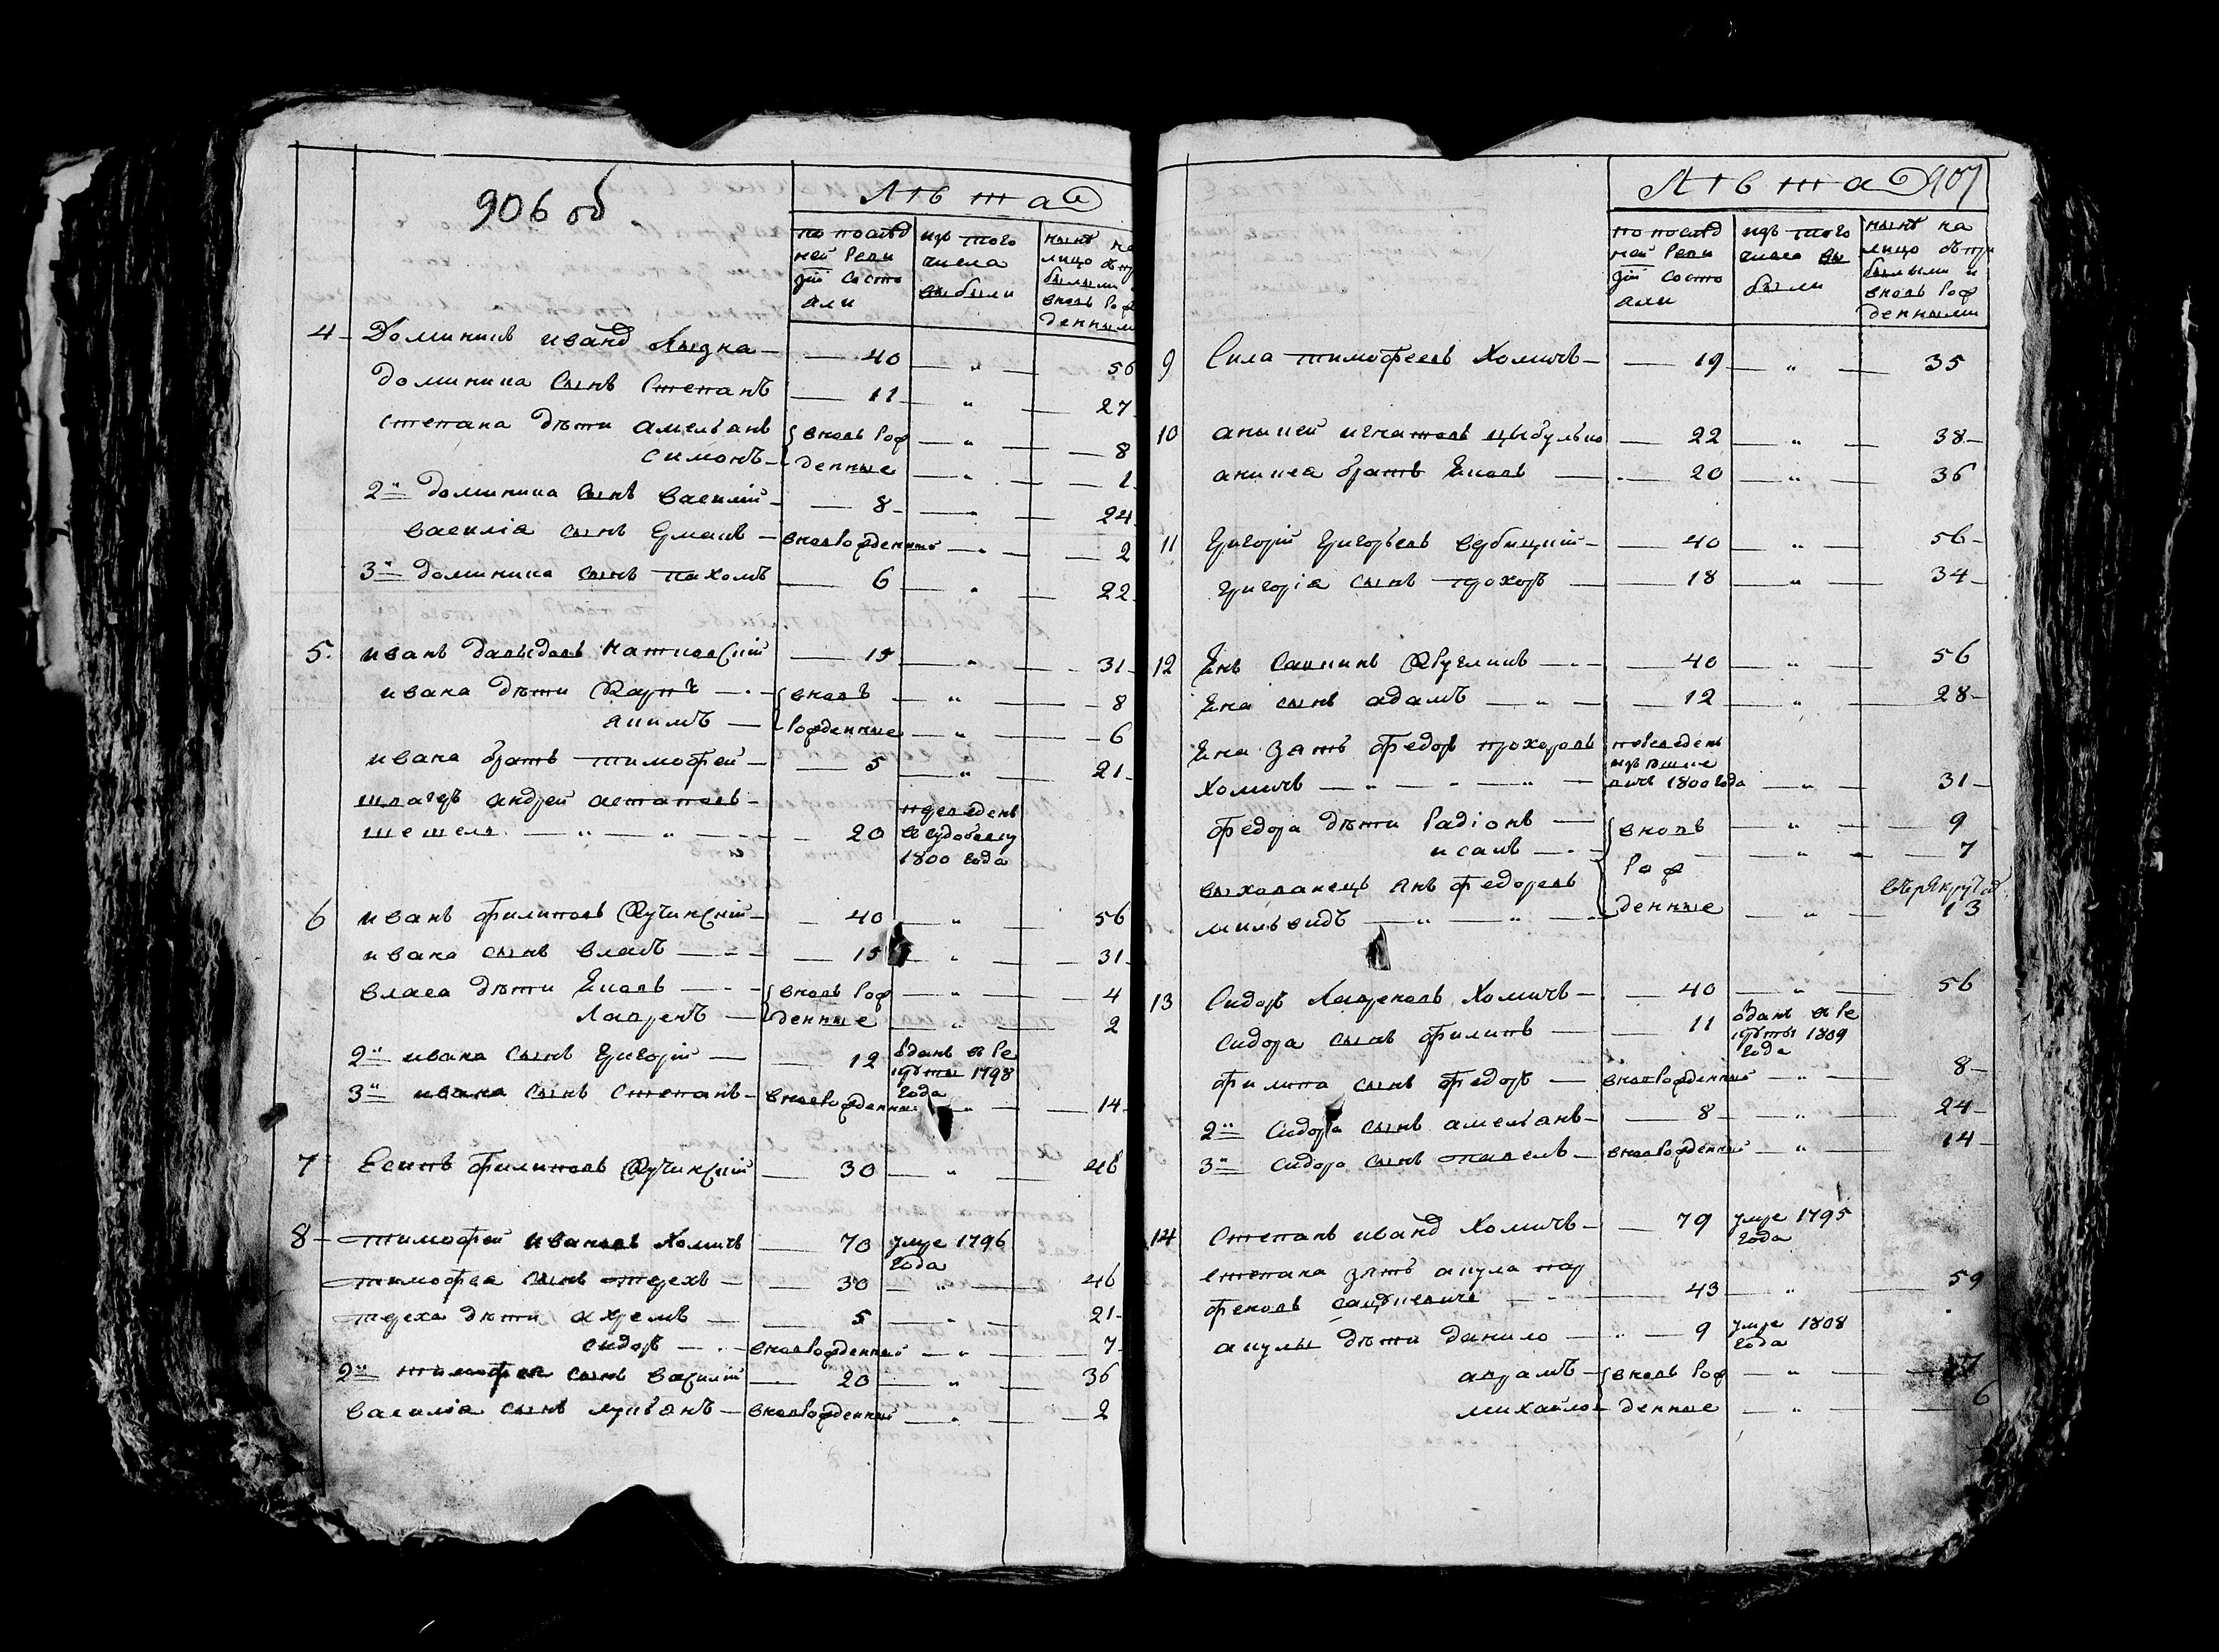 906 об
Лѣта
по послѣд
ней Реви
зіи состо
али
изъ того
числа
выбыли
нынѣ на
лицо съ при
былыми
вновь Рож
денными
4 Доминикъ Иванов 40 „ 56
Доминика сынъ Степанъ 11 „ 27
Степана дѣти Амельянъ вновь Рож „ 8
Симонъ денные „ 1
2й Доминика сынъ Василій 8 „ 24
Василія сынъ вновьРожденный „ 2
3й Доминика сынъ Пахомъ 6 „ 22
5 Иванъ Давыдовъ 15 „ 31
Ивана дѣти Карпъ вновь „ 8
Якимъ Рожденные „ 6
Ивана братъ Тимофей 5 „ 21
Андрей Астаповъ переведенъ
20
1800 Года
6 Иванъ Филиповъ Кучинскій 40 „ 56
Ивана сынъ Власъ 15 „ 31
Власа дѣти Яковъ вновь Рож „ 4
Лавренъ денные „ 2
2й Ивана сынъ Григорій 12 отданъ въ Ре
круты 1798
Года
3й Ивана сынъ Степанъ вновьРожденный „ 14
7 Есипъ Филиповъ Кучинскій 30 „ 46
8 Тимофей Ивановъ Хомичъ 70 умре 1796
Года
Тимофея сынъ Терехъ 30 „ 46
Тереха дѣти Ахремъ 5 „ 21
Сидоръ вновьРожденный „ 7
2й Тимофея сынъ Василій 20 „ 36
Василія сынъ Лукьянъ вновьРожденный „ 2
907
Лѣта
по послѣд
ней Реви
зіи состо
али
изъ того
числа вы
были
нынѣ на
лицо съ при
былыми и
вновь Рож
денными
9 Сила Тимофеевъ Хомичъ 19 „ 35
10 Аникей Игнатовъ Цыбулько 22 „ 38
Аникея братъ Яковъ 20 „ 36
11 Григорій Григорьевъ Вербицкій 40 „ 56
Григорія сынъ Прохоръ 18 „ 34
12 Янъ Кругликъ 40 „ 56
Яна сынъ Адамъ 12 „ 28
Яна зять Федоръ Прохоровъ переведенъ
изъ
Хомичъ 1800 Года „ 31
Федора дѣти Радіонъ вновь „ 9
Исакъ „ 7
Рож
выхованецъ Янъ Федоровъ
денные „ 13
13 Сидоръ Лавреновъ Хомичъ 40 „ 56
Сидора сынъ Филипъ 11 отданъ въ Ре
круты 1809
Года
Филипа сынъ Федоръ вновьРожденный „ 8
2й Сидора сынъ Амельянъ 8 „ 24
3й Сидора сынъ Павелъ вновьРожденный „ 14
14 Степанъ Иванов Хомичъ 79 умре 1795
Года
Степана зять Акула Пар
феновъ 43 „ 59
Акулы дѣти Данило 9 умре 1808
Года
Аврамъ вновь Рож „ 7
Михайло денные „ 6